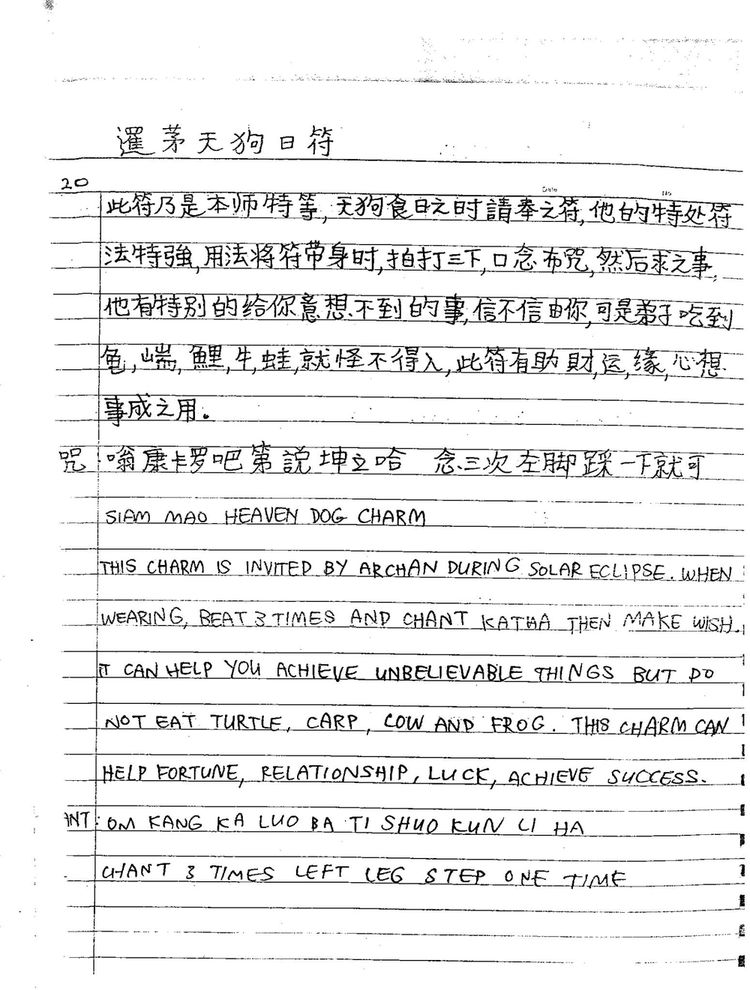 暹茅天狗日符
20
此符乃是本师特等,天狗食日之时請奉之符,他的特处符
法特強,用法将符带身时,拍打三下,口念布咒,然后求之事,
他有特别的给你意想不到的事,信不信由你,可是弟子吃到
龟,喘,鯉,牛,蛙,就怪不得人,此符有助財,运,缘,心想
事成之用。
咒:嗡康卡罗吧第說坤立哈 念三次左脚踩一下就可
SIAM MAO HEAVEN DOG CHARM
THIS CHARM IS INVITED BY ARCHAN DURING SOLAR ECLIPSE. WHEN
WEARING, BEAT 3 TIMES AND CHANT KATHA THEN MAKE WISH.
IT CAN HELP YOU ACHIEVE UNBELIEVABLE THINGS BUT DO
NOT EAT TURTLE, CARP, COW AND FROG. THIS CHARM CAN
HELP FORTUNE, RELATIONSHIP, LUCK, ACHIEVE SUCCESS.
ANT: OM KANG KA LUO BA TI SHUO KUN LI HA
CHANT 3 TIMES LEFT LEG STEP ONE TIME